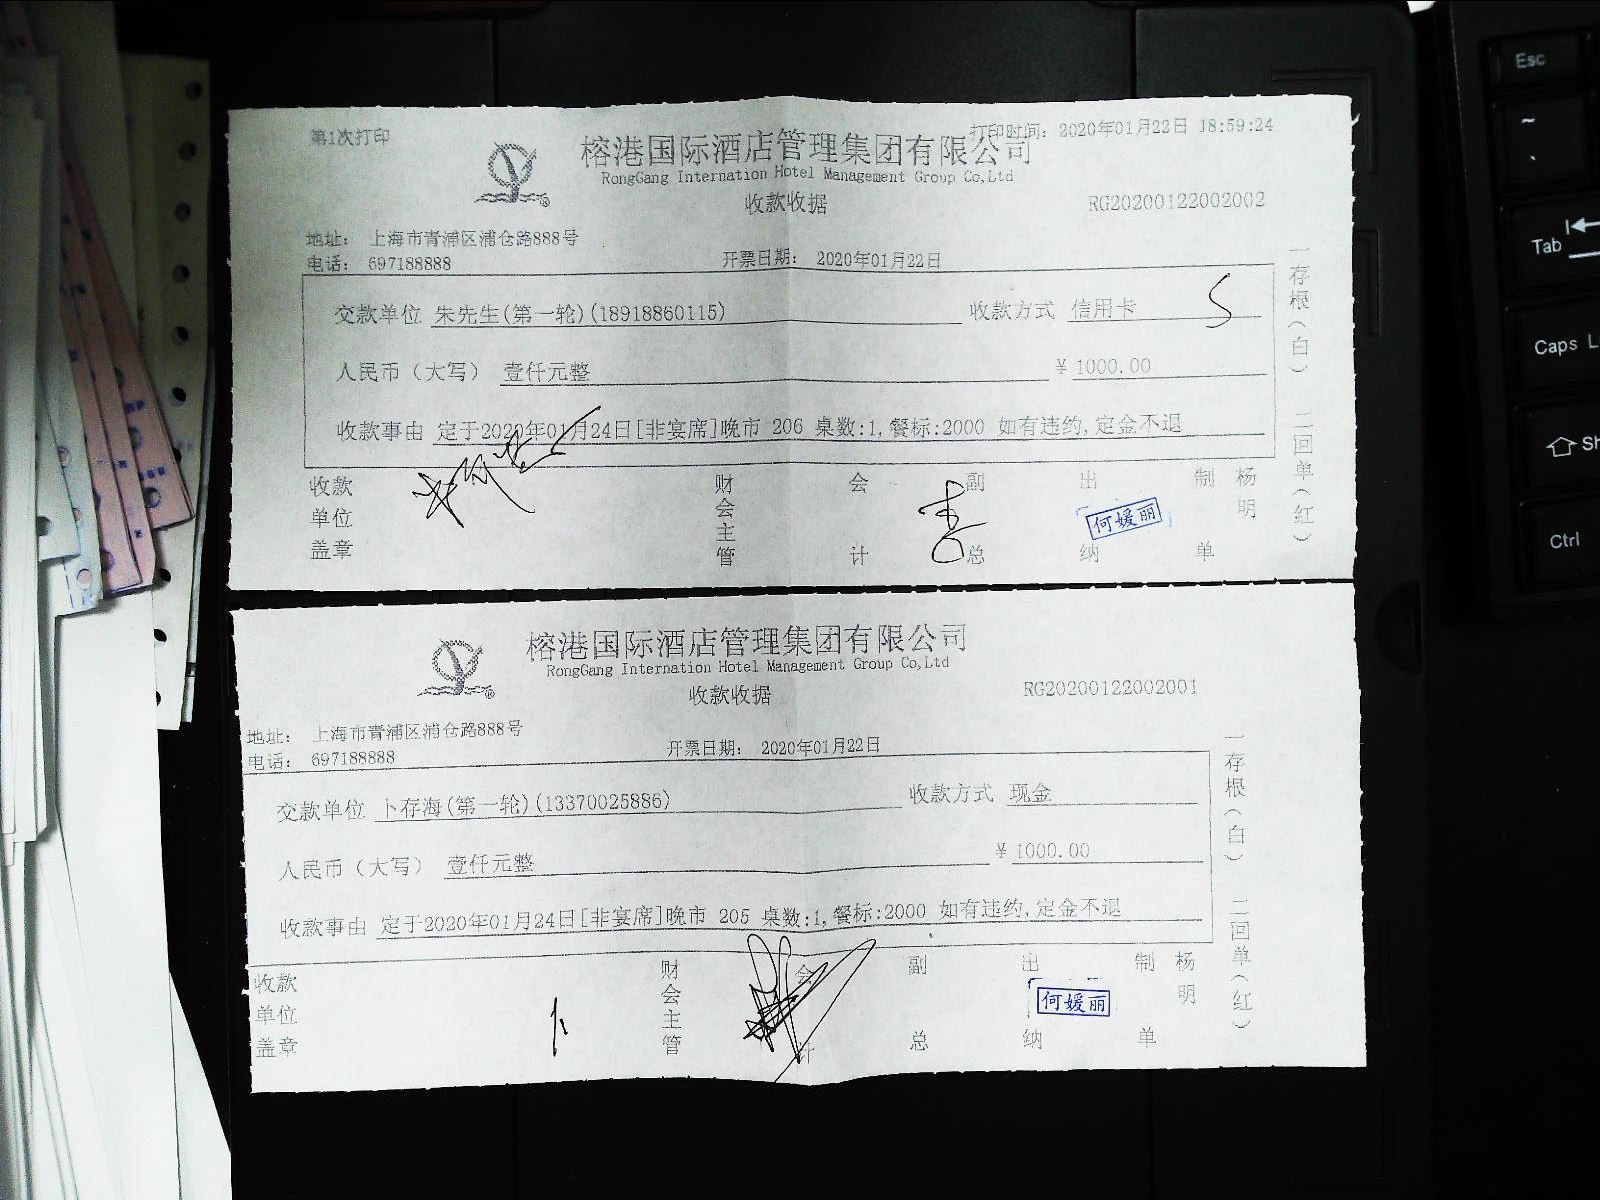 第1次打印
打印时间：2020年01月22日 18:59:24
榕港国际酒店管理集团有限公司
RongGang Internation Hotel Management Group Co,Ltd
收款收据
RG20200122002002
地址： 上海市青浦区浦仓路888号
电话： 697188888
开票日期： 2020年01月22日
交款单位 朱先生(第一轮)(18918860115) 收款方式 信用卡
人民币（大写） 壹仟元整 ￥1000.00
收款事由 定于2020年01月24日[非宴席]晚市 206 桌数:1,餐标:2000 如有违约,定金不退
收款单位盖章 财会主管 会计 副总 出纳 何媛丽 制单 杨明
一存根（白） 二回单（红）
榕港国际酒店管理集团有限公司
RongGang Internation Hotel Management Group Co,Ltd
收款收据
RG20200122002001
地址： 上海市青浦区浦仓路888号
电话： 697188888
开票日期： 2020年01月22日
交款单位 卜存海(第一轮)(13370025886) 收款方式 现金
人民币（大写） 壹仟元整 ￥1000.00
收款事由 定于2020年01月24日[非宴席]晚市 205 桌数:1,餐标:2000 如有违约,定金不退
收款单位盖章 卜 财会主管 会计 副总 出纳 何媛丽 制单 杨明
一存根（白） 二回单（红）
Esc
~
Tab
Caps L
Sh
Ctrl